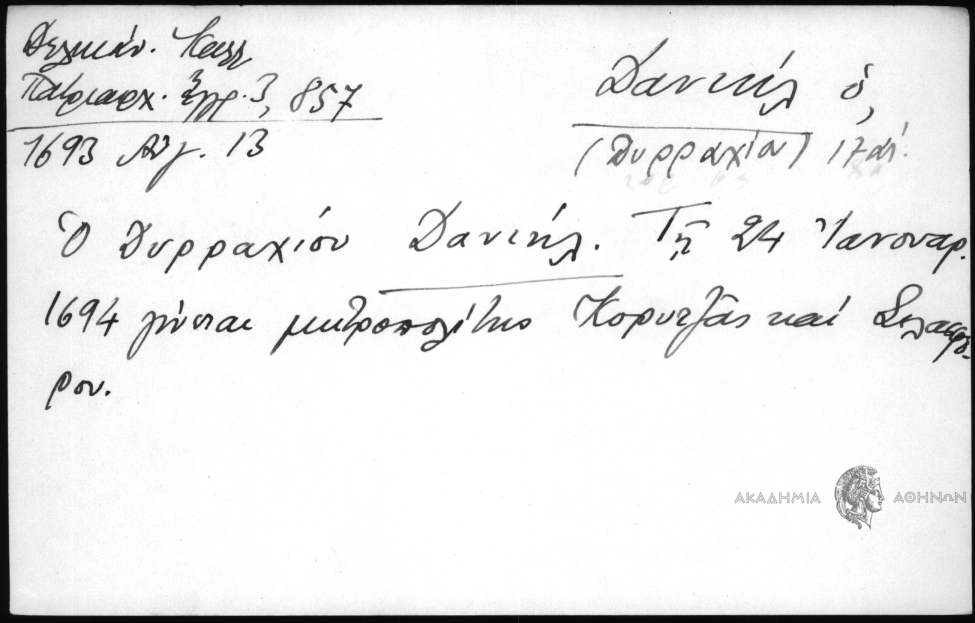 Δελικάν. Καλλ
Πατριαρχ. Ἔγγρ. 3, 857
1693 Αὐγ. 13
Δανιήλ ὁ,
(Δυρραχίου) 17 αἰ.
Ὁ Δυρραχίου Δανιήλ. Τῇ 24 Ἰανουαρ.
1694 γίνεται μητροπολίτης Κορυτζᾶς καί Σελασφό-
ρου.
ΑΚΑΔΗΜΙΑ ΑΘΗΝΩΝ